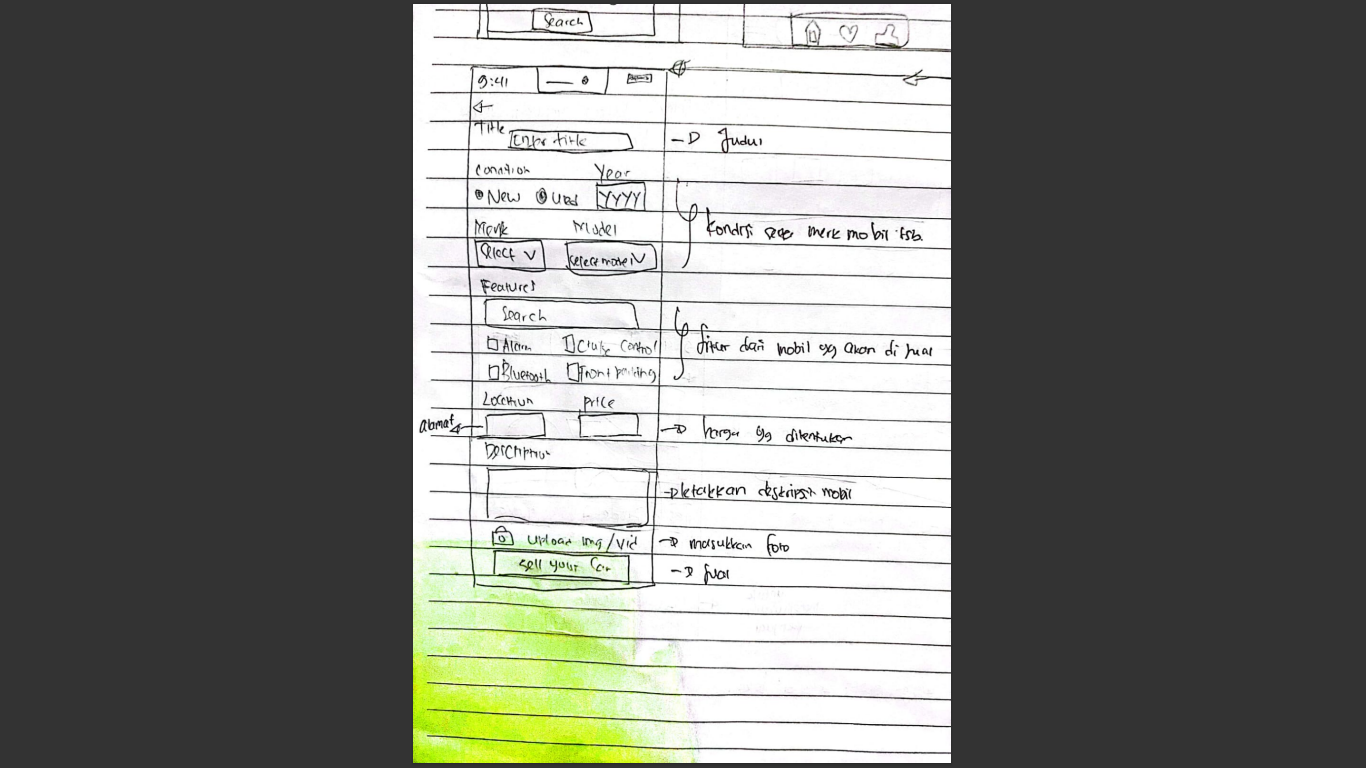 Search
9:41
Title
Enter title → Judul
Condition Year
New Used YYYY
Merk Model
Select V Select model V
kondisi merk mobil tsb.
Features
Search
Alarm Cruise Control
fitur dari mobil yg akan di jual
Bluetooth Front parking
Location Price
alamat
harga yg ditentukan
Description
letakkan deskripsi mobil
Upload img/vid → masukkan foto
Sell your Car → Jual